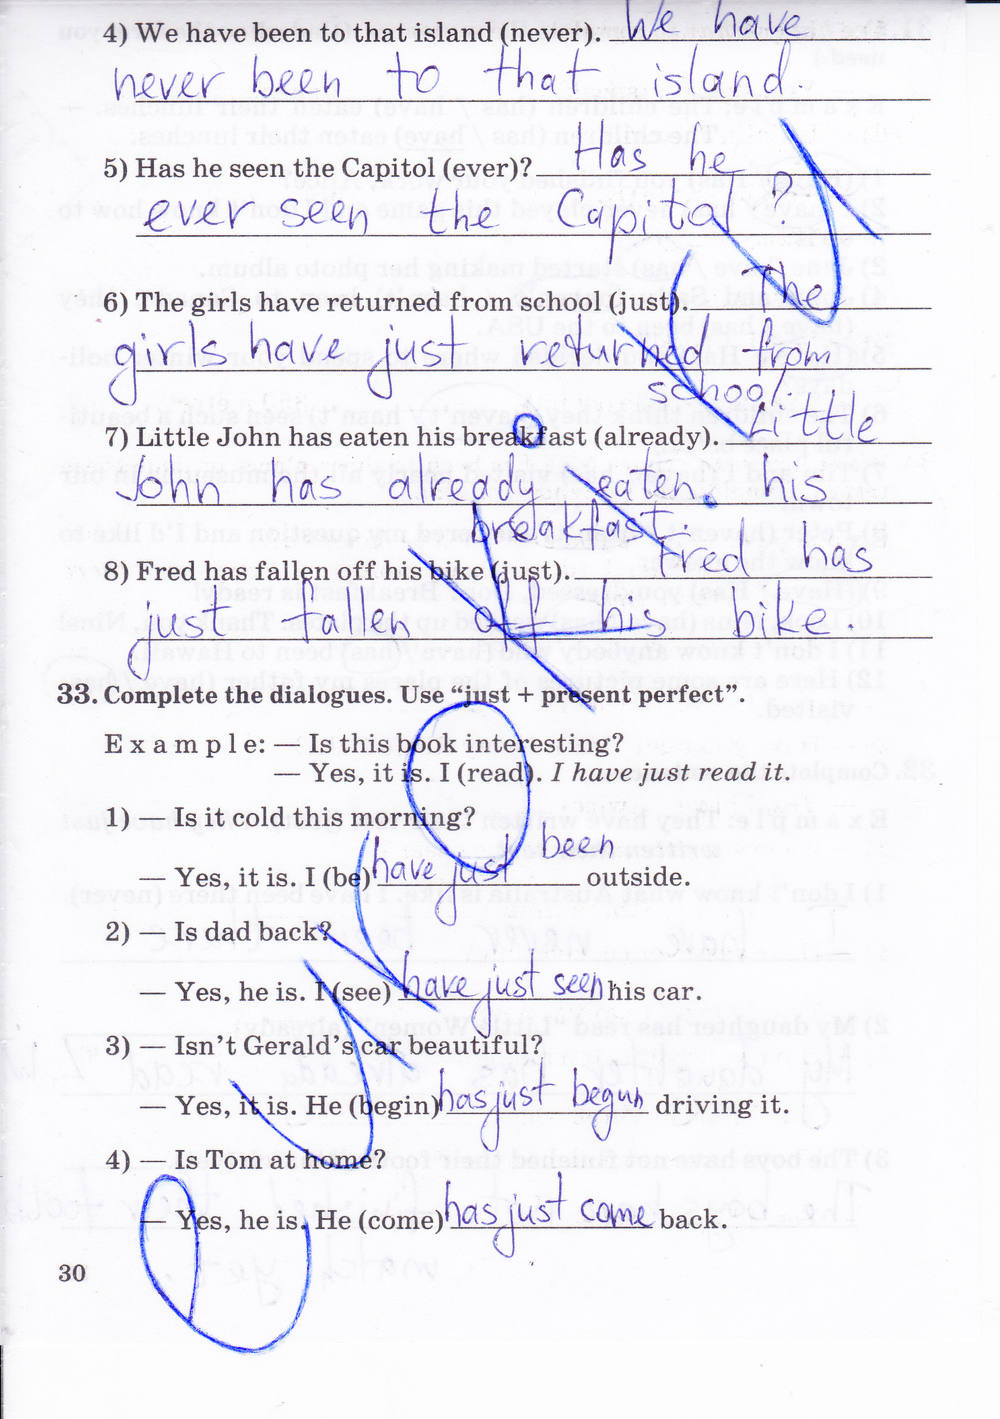 4) We have been to that island (never). We have
never been to that island
5) Has he seen the Capitol (ever)? Has he
ever seen the capitol?
6) The girls have returned from school (just). The
girls have just returned from
school.
7) Little John has eaten his breakfast (already). Little
John has already eaten his
breakfast.
8) Fred has fallen off his bike (just). Fred has
just fallen off his bike.
33. Complete the dialogues. Use “just + present perfect”.
Example: — Is this book interesting?
— Yes, it is. I (read). I have just read it.
1) — Is it cold this morning?
— Yes, it is. I (be) have just been outside.
2) — Is dad back?
— Yes, he is. I (see) have just seen his car.
3) — Isn’t Gerald’s car beautiful?
— Yes, it is. He (begin) has just begun driving it.
4) — Is Tom at home?
— Yes, he is. He (come) has just come back.
30